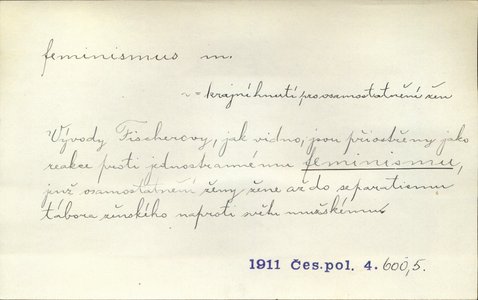 feminismus m.
~ = krajní hnutí pro osamostatnění žen
Vývody Fischerovy, jak vidno, jsou přiostřeny jako
reakce proti jednostrannému feminismu,
jenž osamostatnění ženy žene až do separatismu
tábora ženského naproti světu mužskému.
1911 Čes. pol. 4. 600,5.